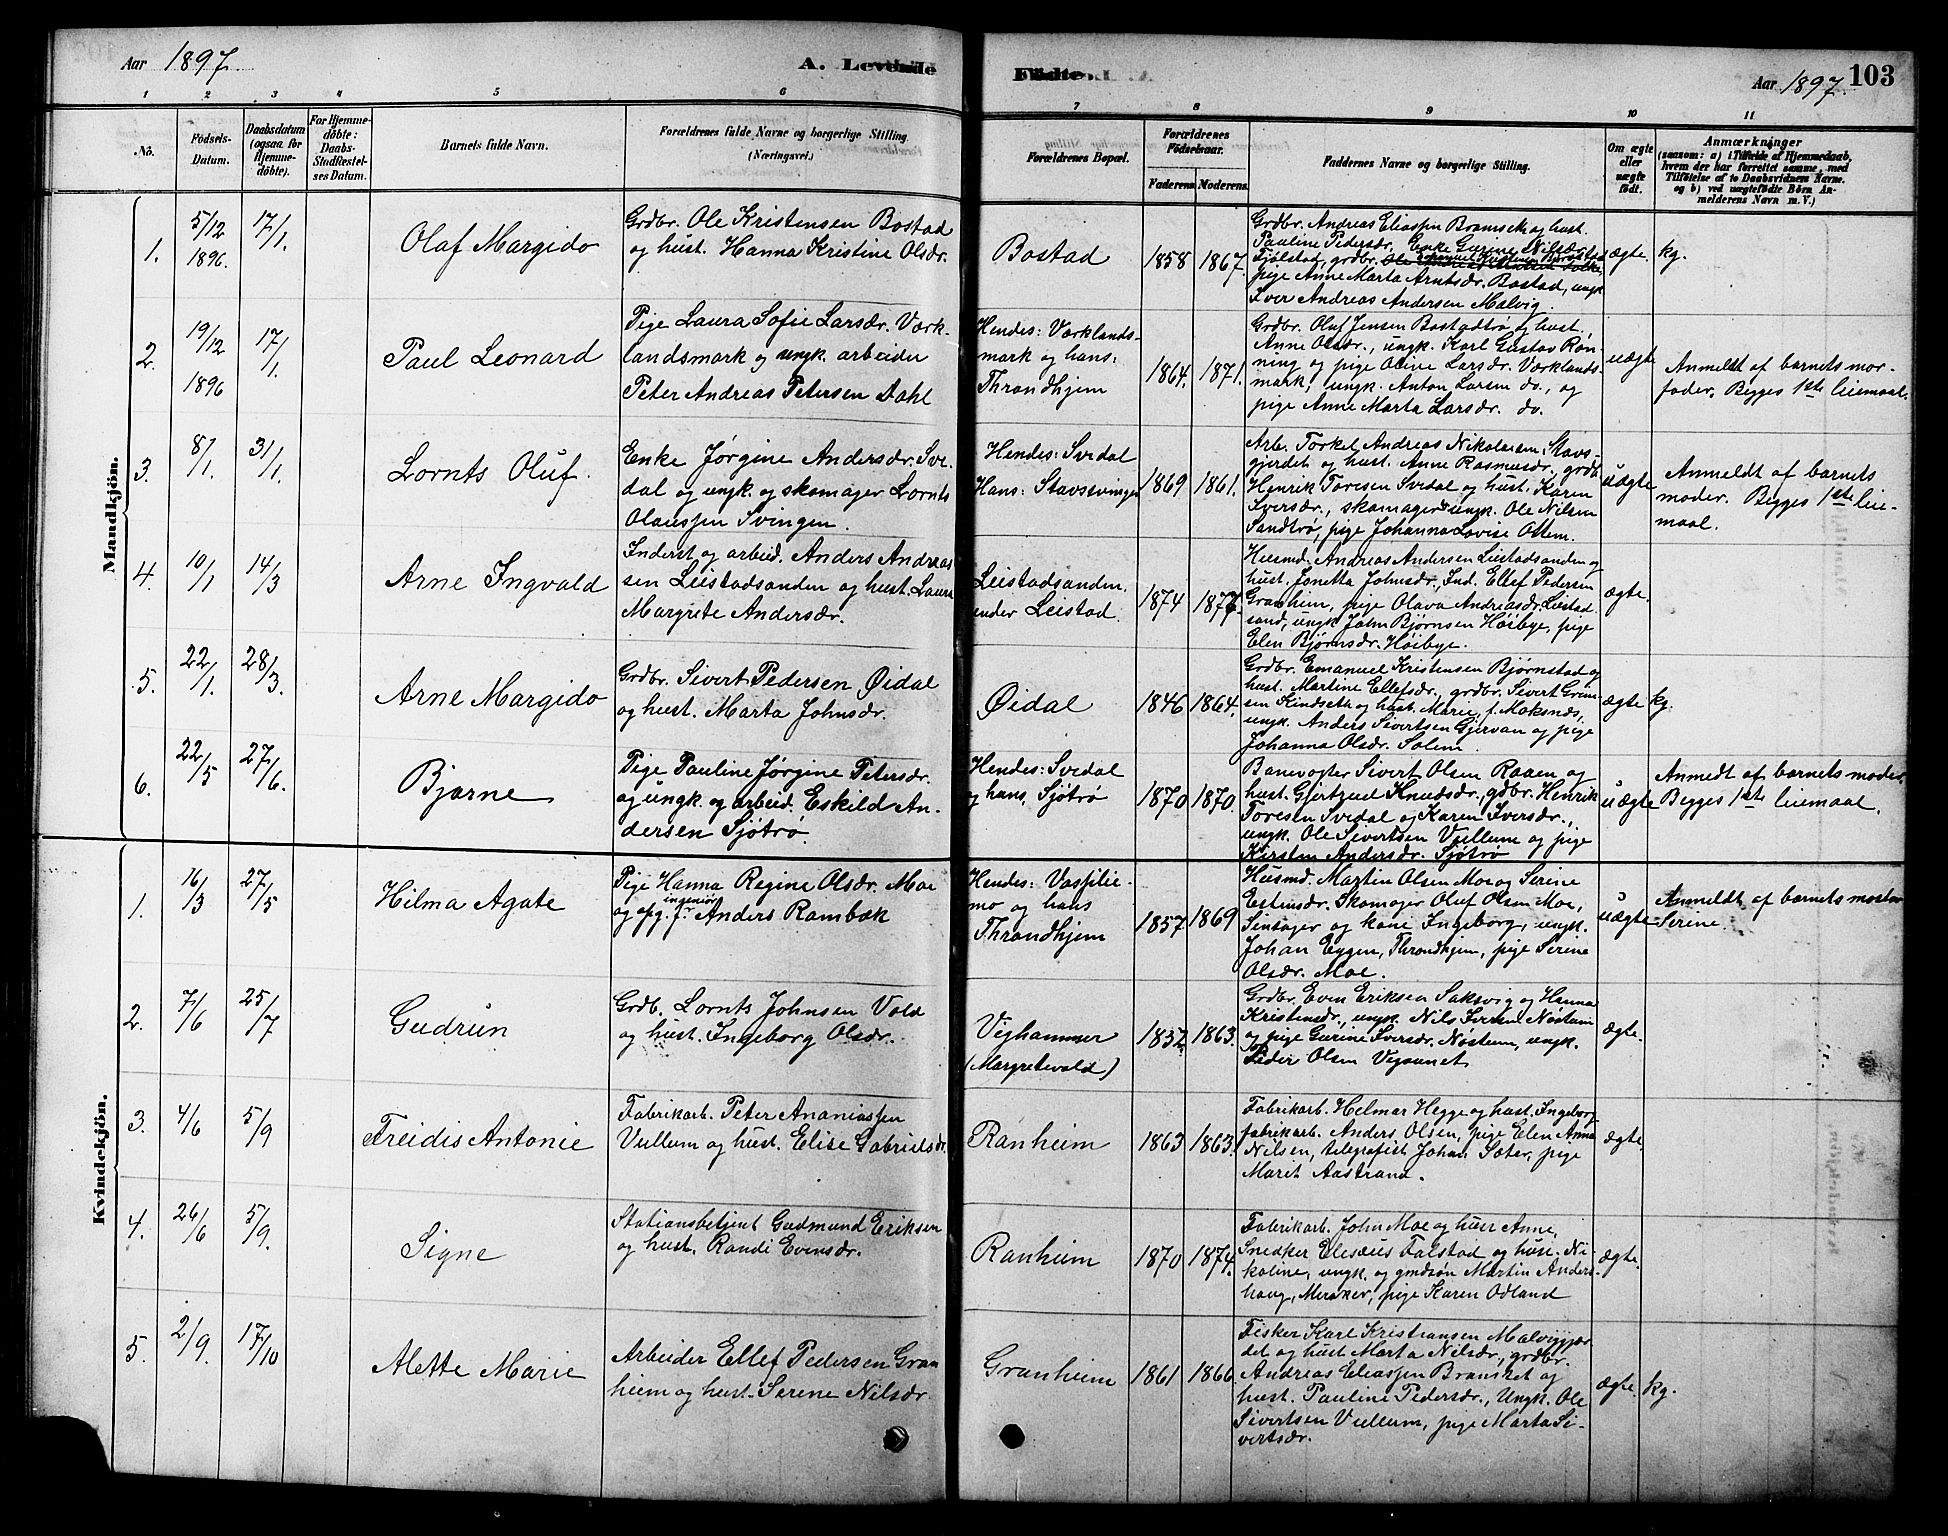 Aar 1897.
A. Levende
Fødte.
Aar 1897.
103
1 2 3 4 5 6 7 8 9 10 11
No.
Fødsels-
Datum.
Daabsdatum
(ogsaa for
Hjemme-
døbte).
For Hjemme-
døbte:
Daabs-
Stadfæstel-
ses Datum.
Barnets fulde Navn.
Forældrenes fulde Navne og borgerlige Stilling.
(Næringsvei.)
Forældrenes Bopæl.
Forældrenes
Fødselsaar.
Faderens Moderens
Faddernes Navne og borgerlige Stilling.
Om ægte
eller
uægte
født.
Anmærkninger
(saasom: a) i Tilfælde af Hjemmedaab,
hvem der har forrettet samme, med
Tilføielse af to Daabsvidners Navne.
og b) ved uægtefødte Børn An-
melderens Navn m. V.)
Mandkjön.
1.
5/12
1896.
17/1.
Olaf Margido
Grdbr. Ole Kristensen Bostad
og hust. Hanna Kristine Olsdr.
Bostad
1858
1867.
Grdbr. Andreas Eliassen Bramseth og hust.
Pauline Pedersdr., Enke Gurine Nilsdr.
Fjølstad, grdbr.
pige Anne Marta Arntsdr. Bostad, ungk.
Iver Andreas Andersen Malvig.
ægte.
kg.
2.
19/12
1896
17/1.
Paul Leonard
Pige Laura Sofie Larsdr. Værk-
landsmark og ungk. arbeider
Peter Andreas Petersen Dahl
Hendes: Værklands-
mark og hans:
Throndhjem
1864.
1871.
Grdbr. Oluf Jensen Bostadtrø og hust.
Anne Olsdr., ungk. Karl Gustav Røn-
ning og pige Oline Larsdr. Værklands-
mark, ungk. Anton Larsen do., og
pige Anne Marta Larsdr. do.
uægte
Anmeldt af barnets mor-
fader. Begges 1ste leiemaal.
3.
8/1.
31/1
Lornts Oluf.
Enke Jørgine Andersdr. Svi-
dal og ungk. og skomager Lornts
Olaussen Svingen.
Hendes: Svedal
Hans: Stavssvingen
1869
1861.
Arb. Torkel Andreas Nikolaisen, Stavs-
gjerdet og hust. Anne Rasmusdr., grdb.
Henrik Toresen Svedal og hust. Karen
Iversdr., skomager ungk. Ole Nilsen
Sandtrø, pige Johanna Lovise Ottem.
uægte
Anmeldt af barnets
moder. Begges 1ste leie-
maal.
4.
10/1
14/3
Arne Ingvald
Inderst og arbeid. Anders Andreas
sen Leistadsanden og hust. Laura
Margrete Andersdr.
Leistadsanden
under Leistad.
1874
1877.
Husmd. Andreas Andersen Leistadsanden og
hust. Jonetta Johnsdr., Ind. Ellef Pedersen
Granheim, pige Olava Andreasdr. Leistad-
sand, ungk. John Bjørnsen Høibye, pige
Elen Bjørnsdr. Høibye.
ægte.
5.
22/1.
28/3.
Arne Margido
Grdbr. Sivert Pedersen Øidal
og hust. Marta Johnsdr.
Øidal
1846
1864.
Grdbr. Emanuel Kristensen Bjørnstad og
hust. Martine Ellefsdr., grdbr. Sivert Grim-
sen Kindseth og hust. Marie f. Moksnes,
ungk. Anders Sivertsen Gjervan og pige
Johanna Olsdr. Solem.
ægte
kg.
6.
22/5
27/6.
Bjarne
Pige Pauline Jørgine Petersdr.
og ungk. og arbeid. Eskild An-
dersen Sjøtrø
Hendes: Svedal
og hans, Sjøtrø
1870
1870.
Banevogter Sivert Olsen Raaen og
hust. Gjertrud Knudsdr., gdbr. Henrik
Toresen Svedal og Karen Iversdr.,
ungk. Ole Sivertsen Vullum og pige
Kirsten Andersdr. Sjøtrø
uægte
Anmedt af barnets moder.
Begges 1ste leiemaal.
Kvindekjön.
1.
16/3
27/5
Hilma Agate
Pige Hanna Regine Olsdr. Moe
ingeniør
og Anders Rambæk
Hendes:
mo og hans
Throndhjem
1857
1869
Husmd. Martin Olsen Moe og Serine
Estensdr. Skomager Oluf Olsen Moe,
og kone Ingeborg, ungk.
Johan Eggen, Throndhjem, pige Serine
Olsdr. Moe.
uægte
Anmeldt af barnets moster
Serine.
2.
7/6
25/7
Gudrun
Grdb. Lornts Johnsen Vold
og hust. Ingeborg Olsdr.
Vejhammer
(Margretevold)
1832.
1863.
Grdbr. Even Eriksen Saksvig og Hanna
Kristensdr., ungk. Nils Iversen Nøstum
og pige Gurine Iversdr. Nøstum, ungk.
Peder Olsen Vigsanet
ægte.
3.
4/6
5/9
Freidis Antonie
Fabrikarb. Peter Ananiassen
Vullum og hust. Elise Gabrielsdr.
Ranheim
1863
1863.
Fabrikarb. Helmar Hegge og hust. Ingeborg
fabrikarb. Anders Olsen, pige Elen Anna
Nilsen, telegrafist Johan Sæter, pige
Maret Aastrand.
ægte.
4.
26/6
5/9.
Signe
Stationsbetjent Gudmund Eriksen
og hust. Randi Evensdr.
Ranheim
1870
1874.
Fabrikarb. John Moe og hust Anne,
Snedker Elesæus Falstad og hust. Ni-
koline, ungk. og gmdsøn Martin Anders-
haug, Meraker, pige Karen Odland
ægte.
5.
2/9.
17/10
Alette Marie
Arbeider Ellef Pedersen Gran
heim og hust. Serene Nilsdr.
Granheim
1861
1866.
Fisker Karl Kristiansen Malviggjær-
det og hust Marta Nilsdr., grdbr.
Andreas Eliassen Bramset og
hust. Pauline Pedersdr., Ungk. Ole
Sivertsen Vullum, pige Marta Si-
vertsdr.
ægte.
kg.